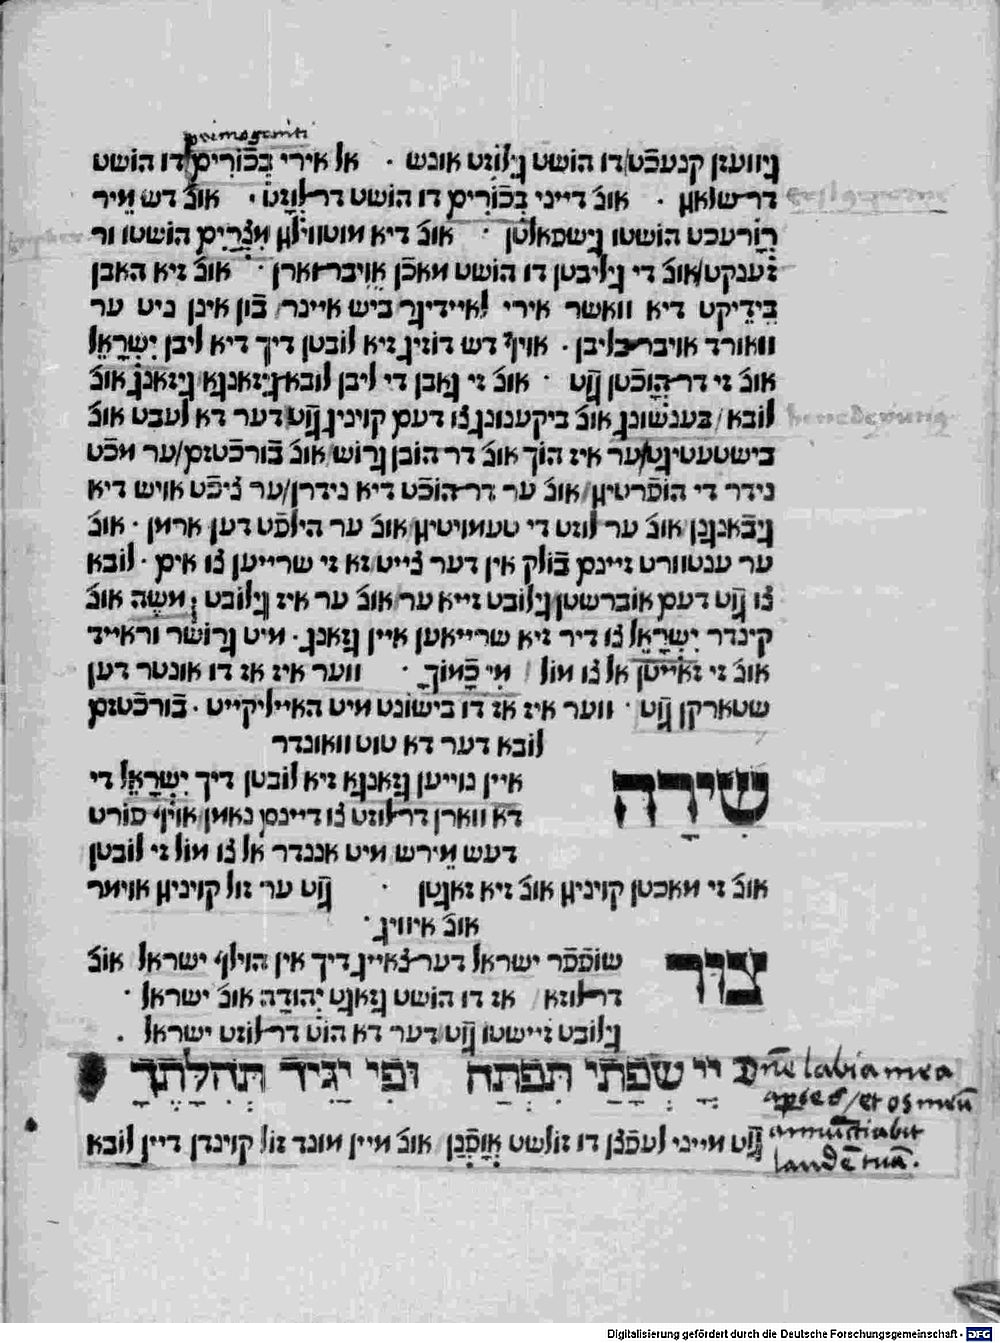 primogeniti
גיוועזן קנעכט דו הושט גילוזט אונש · אל אירי בְכוֹרִים דו הושט
דר שלאגן · אונ׳ דייני בְכוֹרִים דו הושט דר לוזט · אונ׳ דש מֵיר
רוֹרעכט הושטו גישפאלטן · אונ׳ דיא מוטווילגן מִצְרִיִם הושטו ור
זענקט אונ׳ די גיליבטן דו הושט מאכן אִויבר וארן · אונ׳ זיא האבן
בֵידֵיקט דיא וואשר אירי לאיידיגר ביש איינר בֿון אינן ניט ער
וואורד אויבר בליבן · אויף דש דוזיג זיא לובטן דיך דיא ליבן יִשְרָאֵל
אונ׳ זי דר הוֹכטן גֹוט · אונ׳ זי גאבן די ליבן לובא גיזאנגא גיזאנג אונ׳
לובא בענשונג אונ׳ ביקענונג צו דעם קוינינג גֹוט דער דא לעבט אונ׳
בישטעטיגט ער איז הוך אונ׳ דר הובן גרוש אונ׳ בֿורכטזם ער מכט
נידר די הופרטיגן אונ׳ ער דר הוכט דיא נידרן ער ציכט אויש דיא
גיבֿאנגנן אונ׳ ער לוזט די טעמויטיגן אונ׳ ער הילפט דען ארמן · אונ׳
ער ענטוורט זיינם בֿולק אין דער צייט זא זי שרייען צו אים · לובא
צו גֹוט דעם אוברשטן גילובט זייא ער אונ׳ ער איז גילובט : משֶה אונ׳
קינדר יִשְרָאֵל צו דיר זיא שרייאען איין גזאנג · מיט גרושר וראייד
אונ׳ זי זאייטן אל צו מול / מִי כָמוֹךָ · ווער איז אז דו אונטר דען
שטארקן גֹוט · ווער איז אז דו בישונט מיט האייליקייט · בֿורכטזם
לובא דער דא טוט וואונדר
שִירָה
איין נוייען גזאנגא זיא לובטן דיך יִשְרָאֵל די
דא ווארן דר לוזט צו דיינם נאמן אויף פורט
דעש מֵירש מיט אננדר אל צו מול זי לובטן
אונ׳ זי מאכטן קויניגן אונ׳ זיא זאגטן · גֹוט ער זול קויניגן אוימר
אונ׳ איוויג ·
צוּר
שופפר ישראל דער צאייג דיך אין הוילף ישראל אונ׳
דר לוזא / אז דו הושט גזאגט יְהוּדָה אונ׳ ישראל ·
גילובט זיישטו גֹוט דער דא הוט דר לוזט ישראל ·
יְיָ שְפָתַי תִפְתָח וּפִי יַגִיד תְהִלָתֶךָ
Dñe labia mea
aperies / et os meũ
annuntiabit
laudẽ tuã.
גֹוט מייני לעפצן דו זולשט אוֹפְנן אונ׳ מיין מונד זול קוינדן דיין לובא
Digitalisierung gefördert durch die Deutsche Forschungsgemeinschaft - DFG